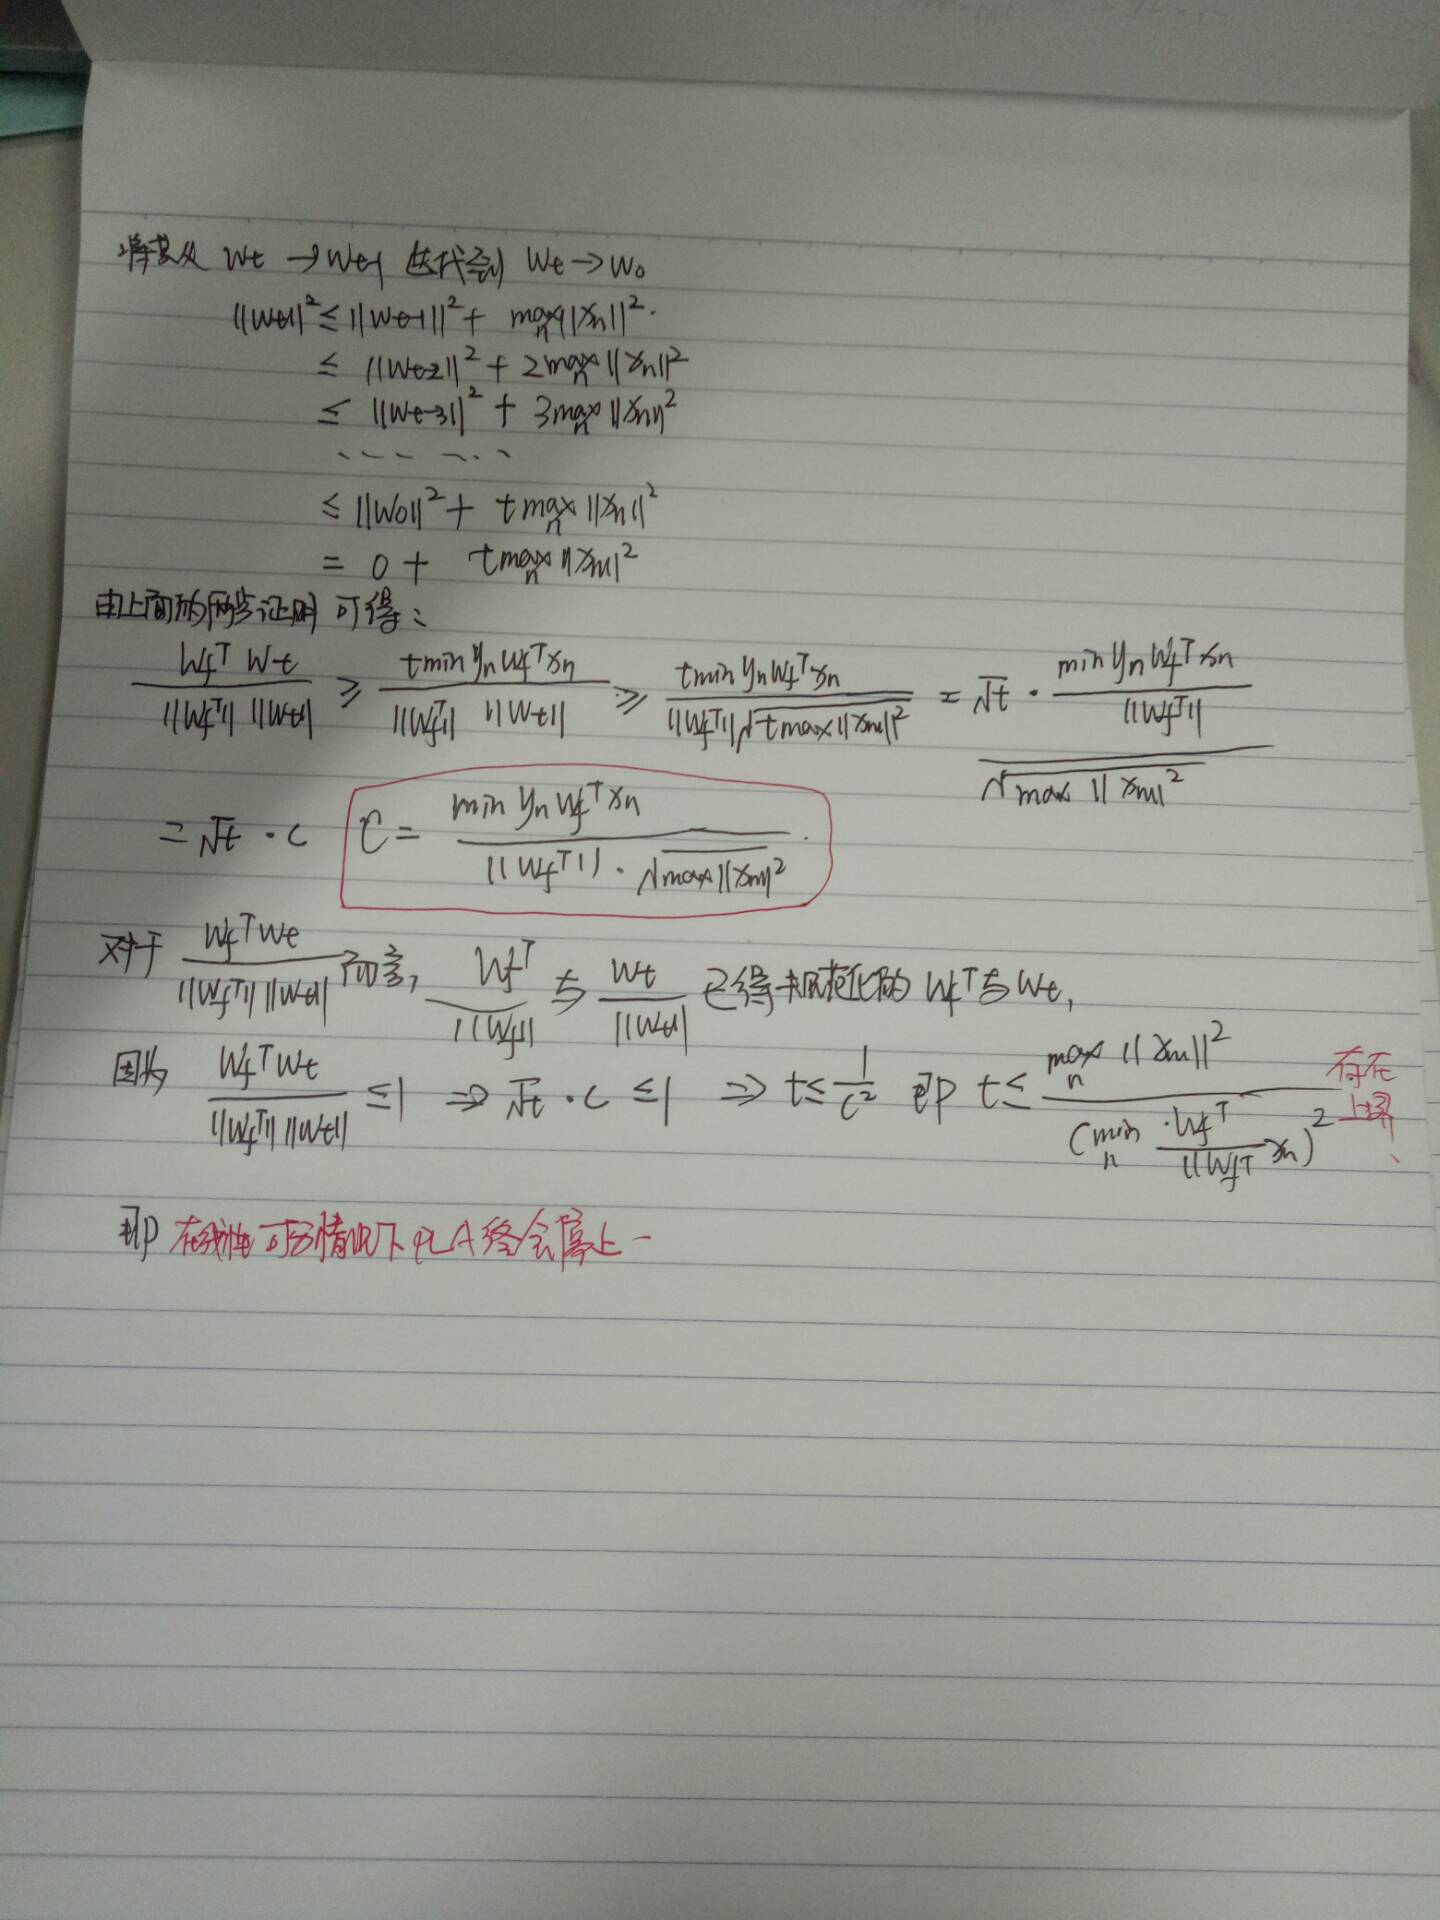 将其从 Wt → Wt-1 迭代到 Wt → W0
||Wt||² ≤ ||Wt-1||² + max n ||xn||²
≤ ||Wt-2||² + 2 max n ||xn||²
≤ ||Wt-3||² + 3 max n ||xn||²
......
≤ ||W0||² + t max n ||xn||²
= 0 + t max n ||xn||²
由上面的两步证明可得:
Wf^T Wt / (||Wf^T|| ||Wt||) ≥ t min yn Wf^T xn / (||Wf^T|| ||Wt||) ≥ t min yn Wf^T xn / (||Wf^T|| √(t max ||xn||²)) = √t · (min yn Wf^T xn / ||Wf^T||) / √(max ||xn||²)
= √t · C C = min yn Wf^T xn / (||Wf^T|| · √(max ||xn||²))
对于 Wf^T Wt / (||Wf^T|| ||Wt||) 而言, Wf^T / ||Wf|| 与 Wt / ||Wt|| 已得规范化的 Wf^T 与 Wt,
因为 Wf^T Wt / (||Wf^T|| ||Wt||) ≤ 1 ⇒ √t · C ≤ 1 ⇒ t ≤ 1/C² 即 t ≤ max n ||xn||² / (min n · Wf^T / ||Wf^T xn)² 存在上界、
即 在线性可分情况下 PLA 终会停止